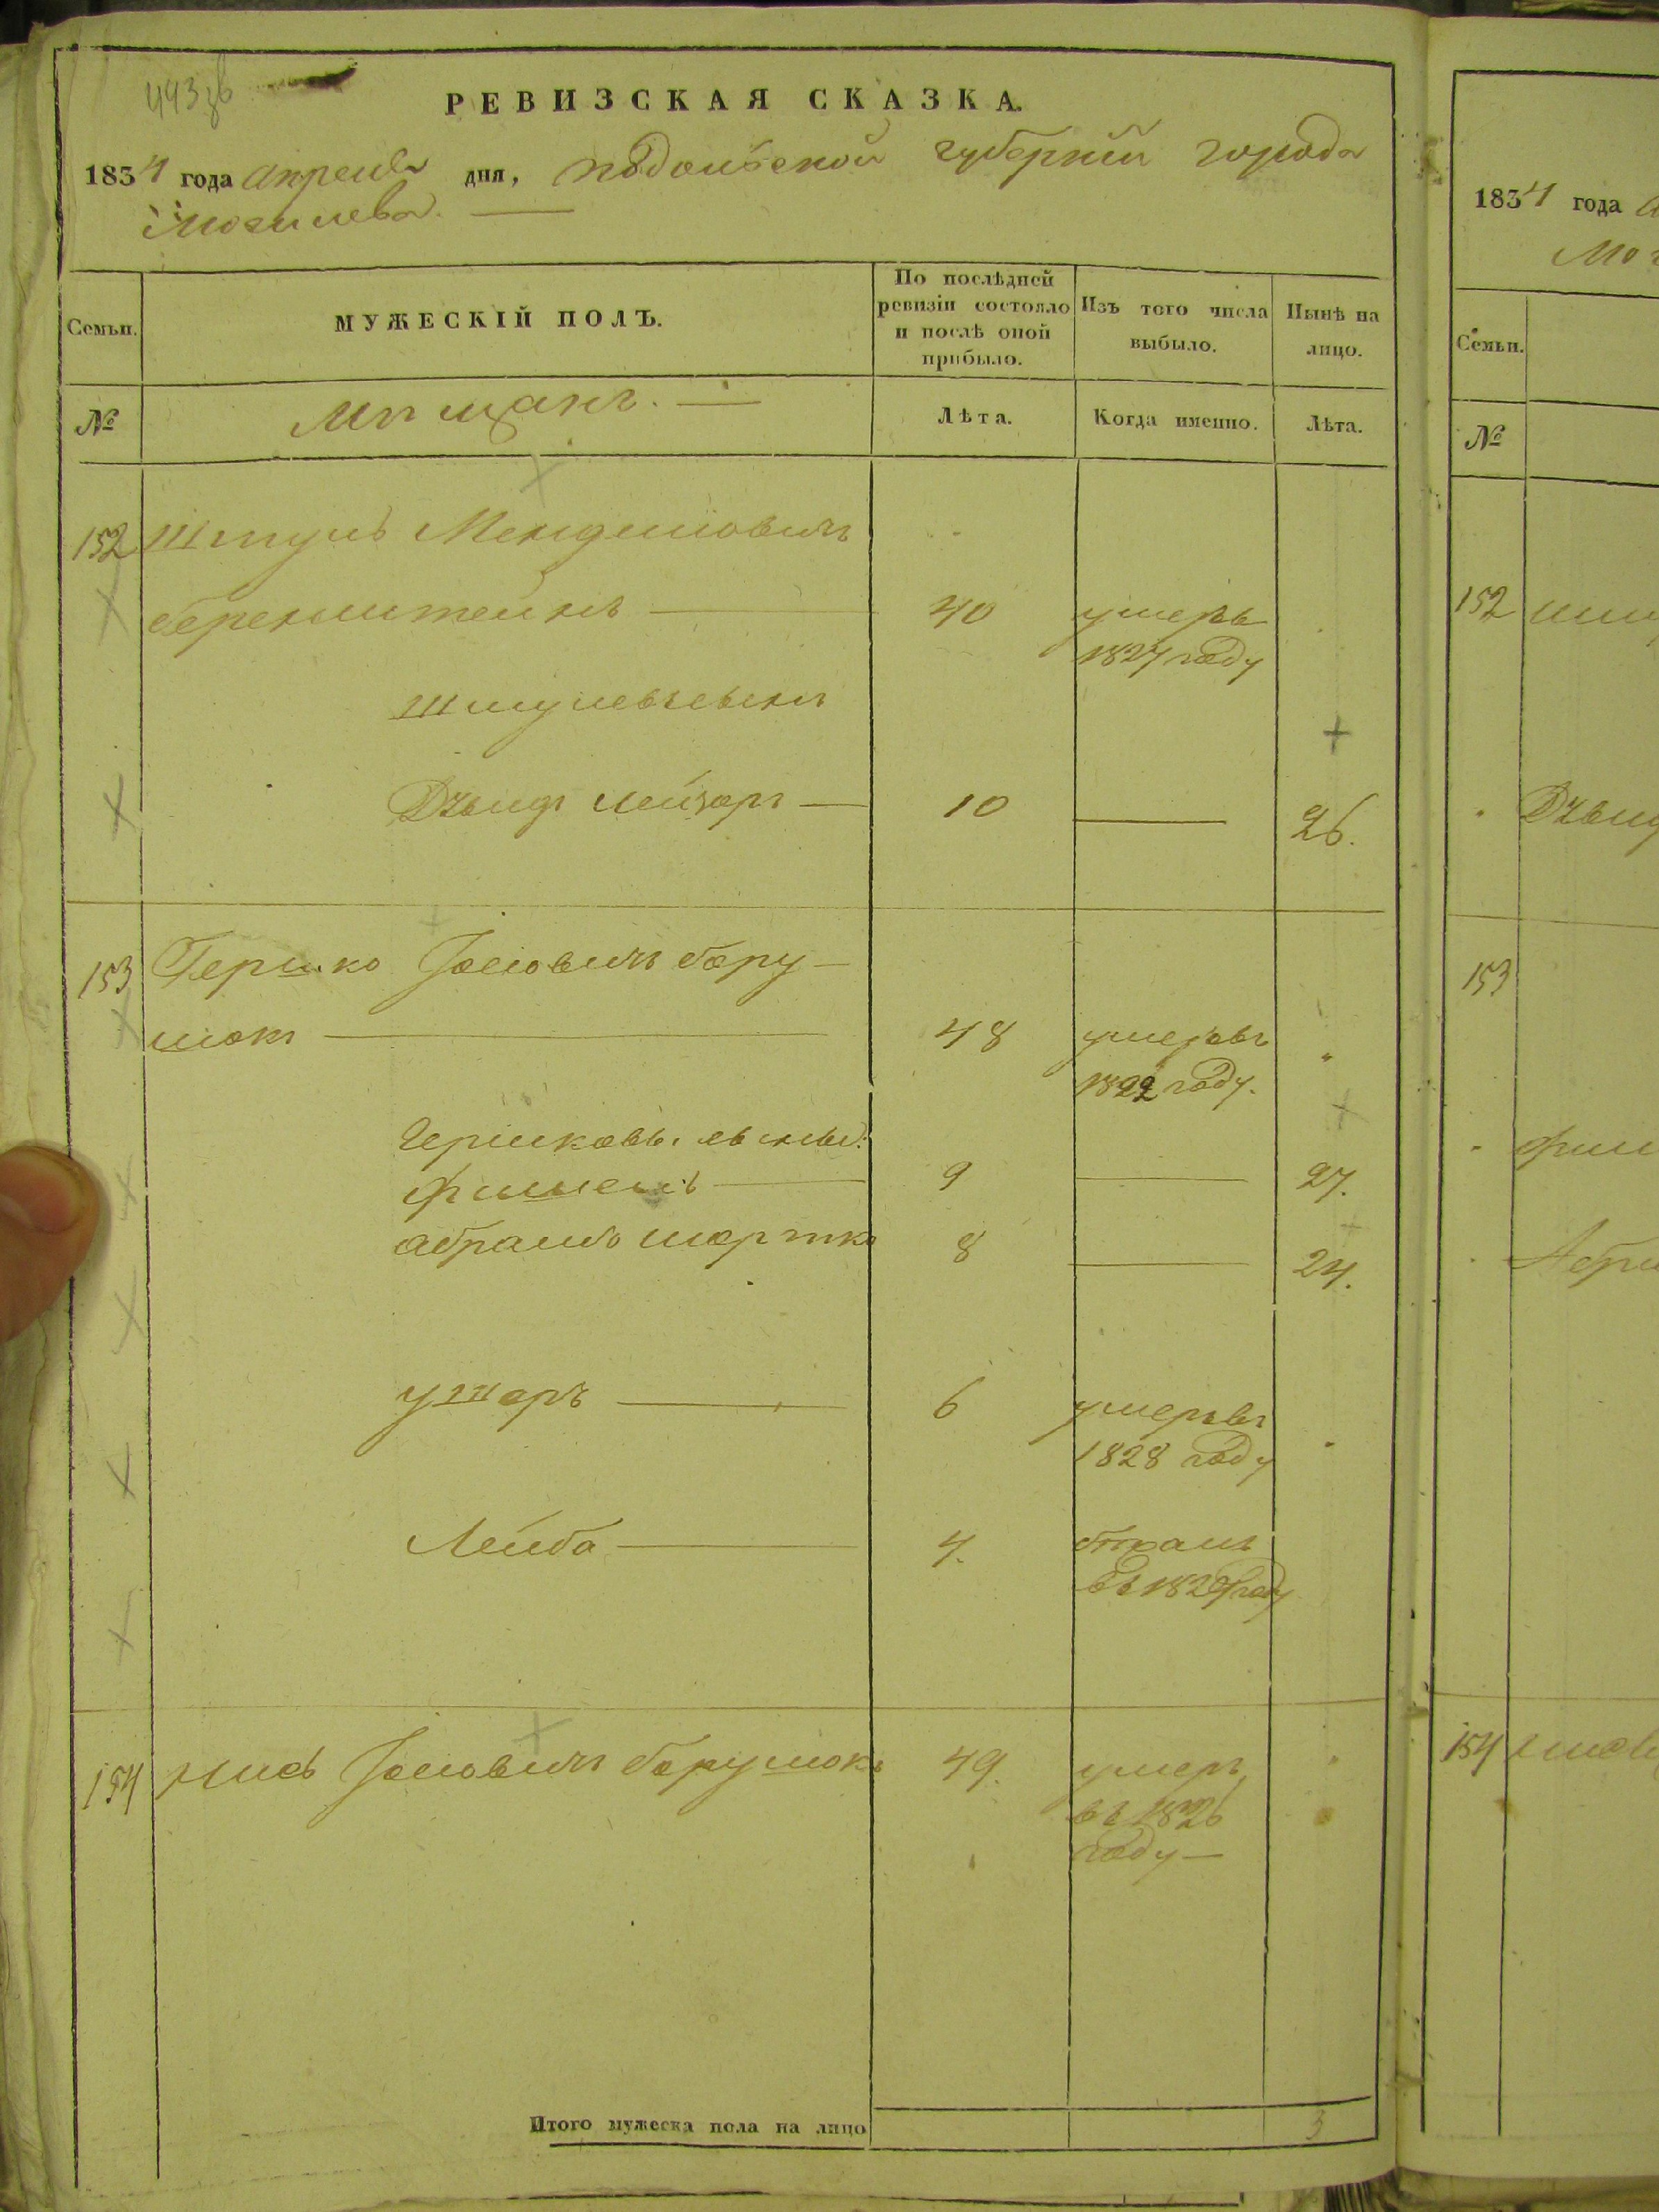 443 об
РЕВИЗСКАЯ СКАЗКА.
1834 года апреля дня, подольской губернии города
Могилева.
Семьи.
МУЖЕСКІЙ ПОЛЪ.
По послѣдней ревизіи состояло и послѣ оной прибыло.
Изъ того числа выбыло.
Нынѣ на лицо.
№
Мѣщанъ.
Лѣта.
Когда именно.
Лѣта.
152 Шмуль Менделіовичъ
беренштейнъ 40 умеръ в
1827 году
Шмулев сынъ
лейзоръ 10 26.
153 Гершко Іосіовичъ бору-
шокъ 48 умеръ въ
1822 году.
Гершковы сыны:
фишель 9 27.
абрамъ мортко 8 24.
ушеръ 6 умеръ въ
1828 году
Лейба 4.
въ году
154 Іосіовичъ борушокъ 49. умеръ
въ 1826
году
Итого мужеска пола на лицо 3
1834 года
Мог
Семьи.
№
152
153
фиш
154